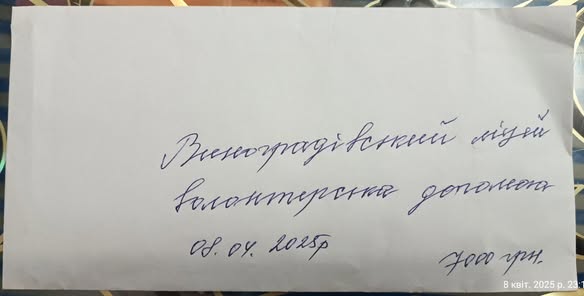 Виноградівський ліцей
волонтерська допомога
08.04.2025р
7000 грн.
8 квіт. 2025 р. 23:1